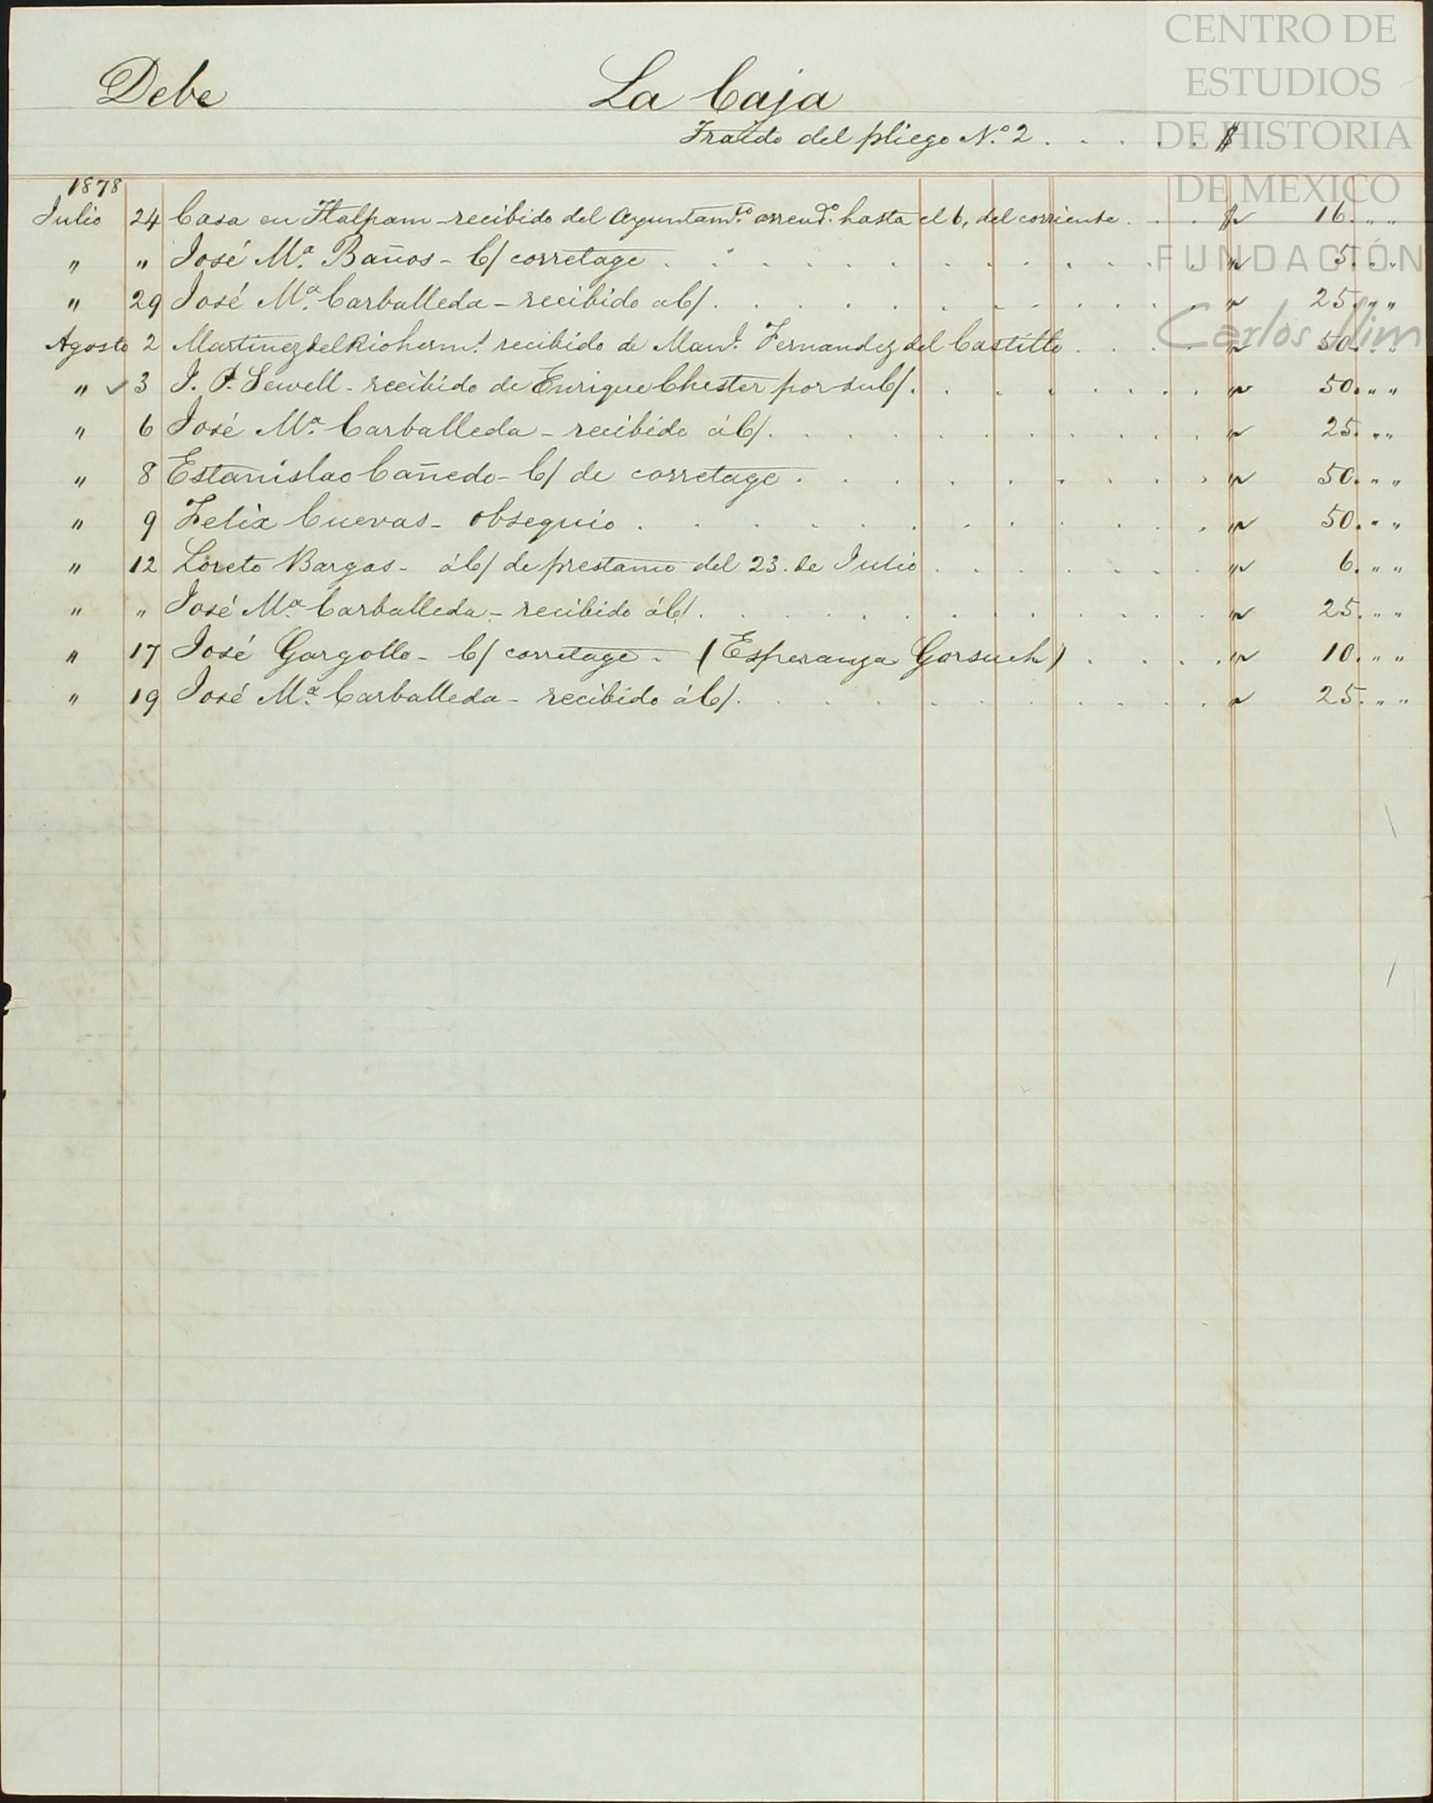 CENTRO DE
ESTUDIOS
DE HISTORIA
DE MEXICO
FUNDACIÓN
Carlos Slim
Debe La Caja
Traido del pliego N.º 2 . . . . . $
1878
Julio 24 Casa en Tlalpam - recibido del Ayuntam.to arrend.º hasta el 6, del corriente . . . $ 16. " "
" " José M.ª Baños - C/ corretage . . . . . . . . . " 5. " "
" 29 José M.ª Carballeda - recibido a C/ . . . . . . . . . " 25. " "
Agosto 2 Martinez del Rio herm.s recibido de Man.l Fernandez del Castillo . . . . " 50. " "
" ✓ 3 J. P. Sewell - recibido de Enrique Chester por su C/ . . . . . . . " 50. " "
" 6 José M.ª Carballeda - recibido á C/ . . . . . . . . . " 25. " "
" 8 Estanislao Cañedo - C/ de corretage . . . . . . . . . " 50. " "
" 9 Felix Cuevas - obsequio . . . . . . . . . " 50. " "
" 12 Loreto Bargas - á C/ de prestamo del 23. de Julio . . . . . . . " 6. " "
" " José M.ª Carballeda - recibido á C/ . . . . . . . . . " 25. " "
" 17 José Gargollo - C/ corretage - (Esperanza Gorsuch) . . . . " 10. " "
" 19 José M.ª Carballeda - recibido á C/ . . . . . . . . . " 25. " "